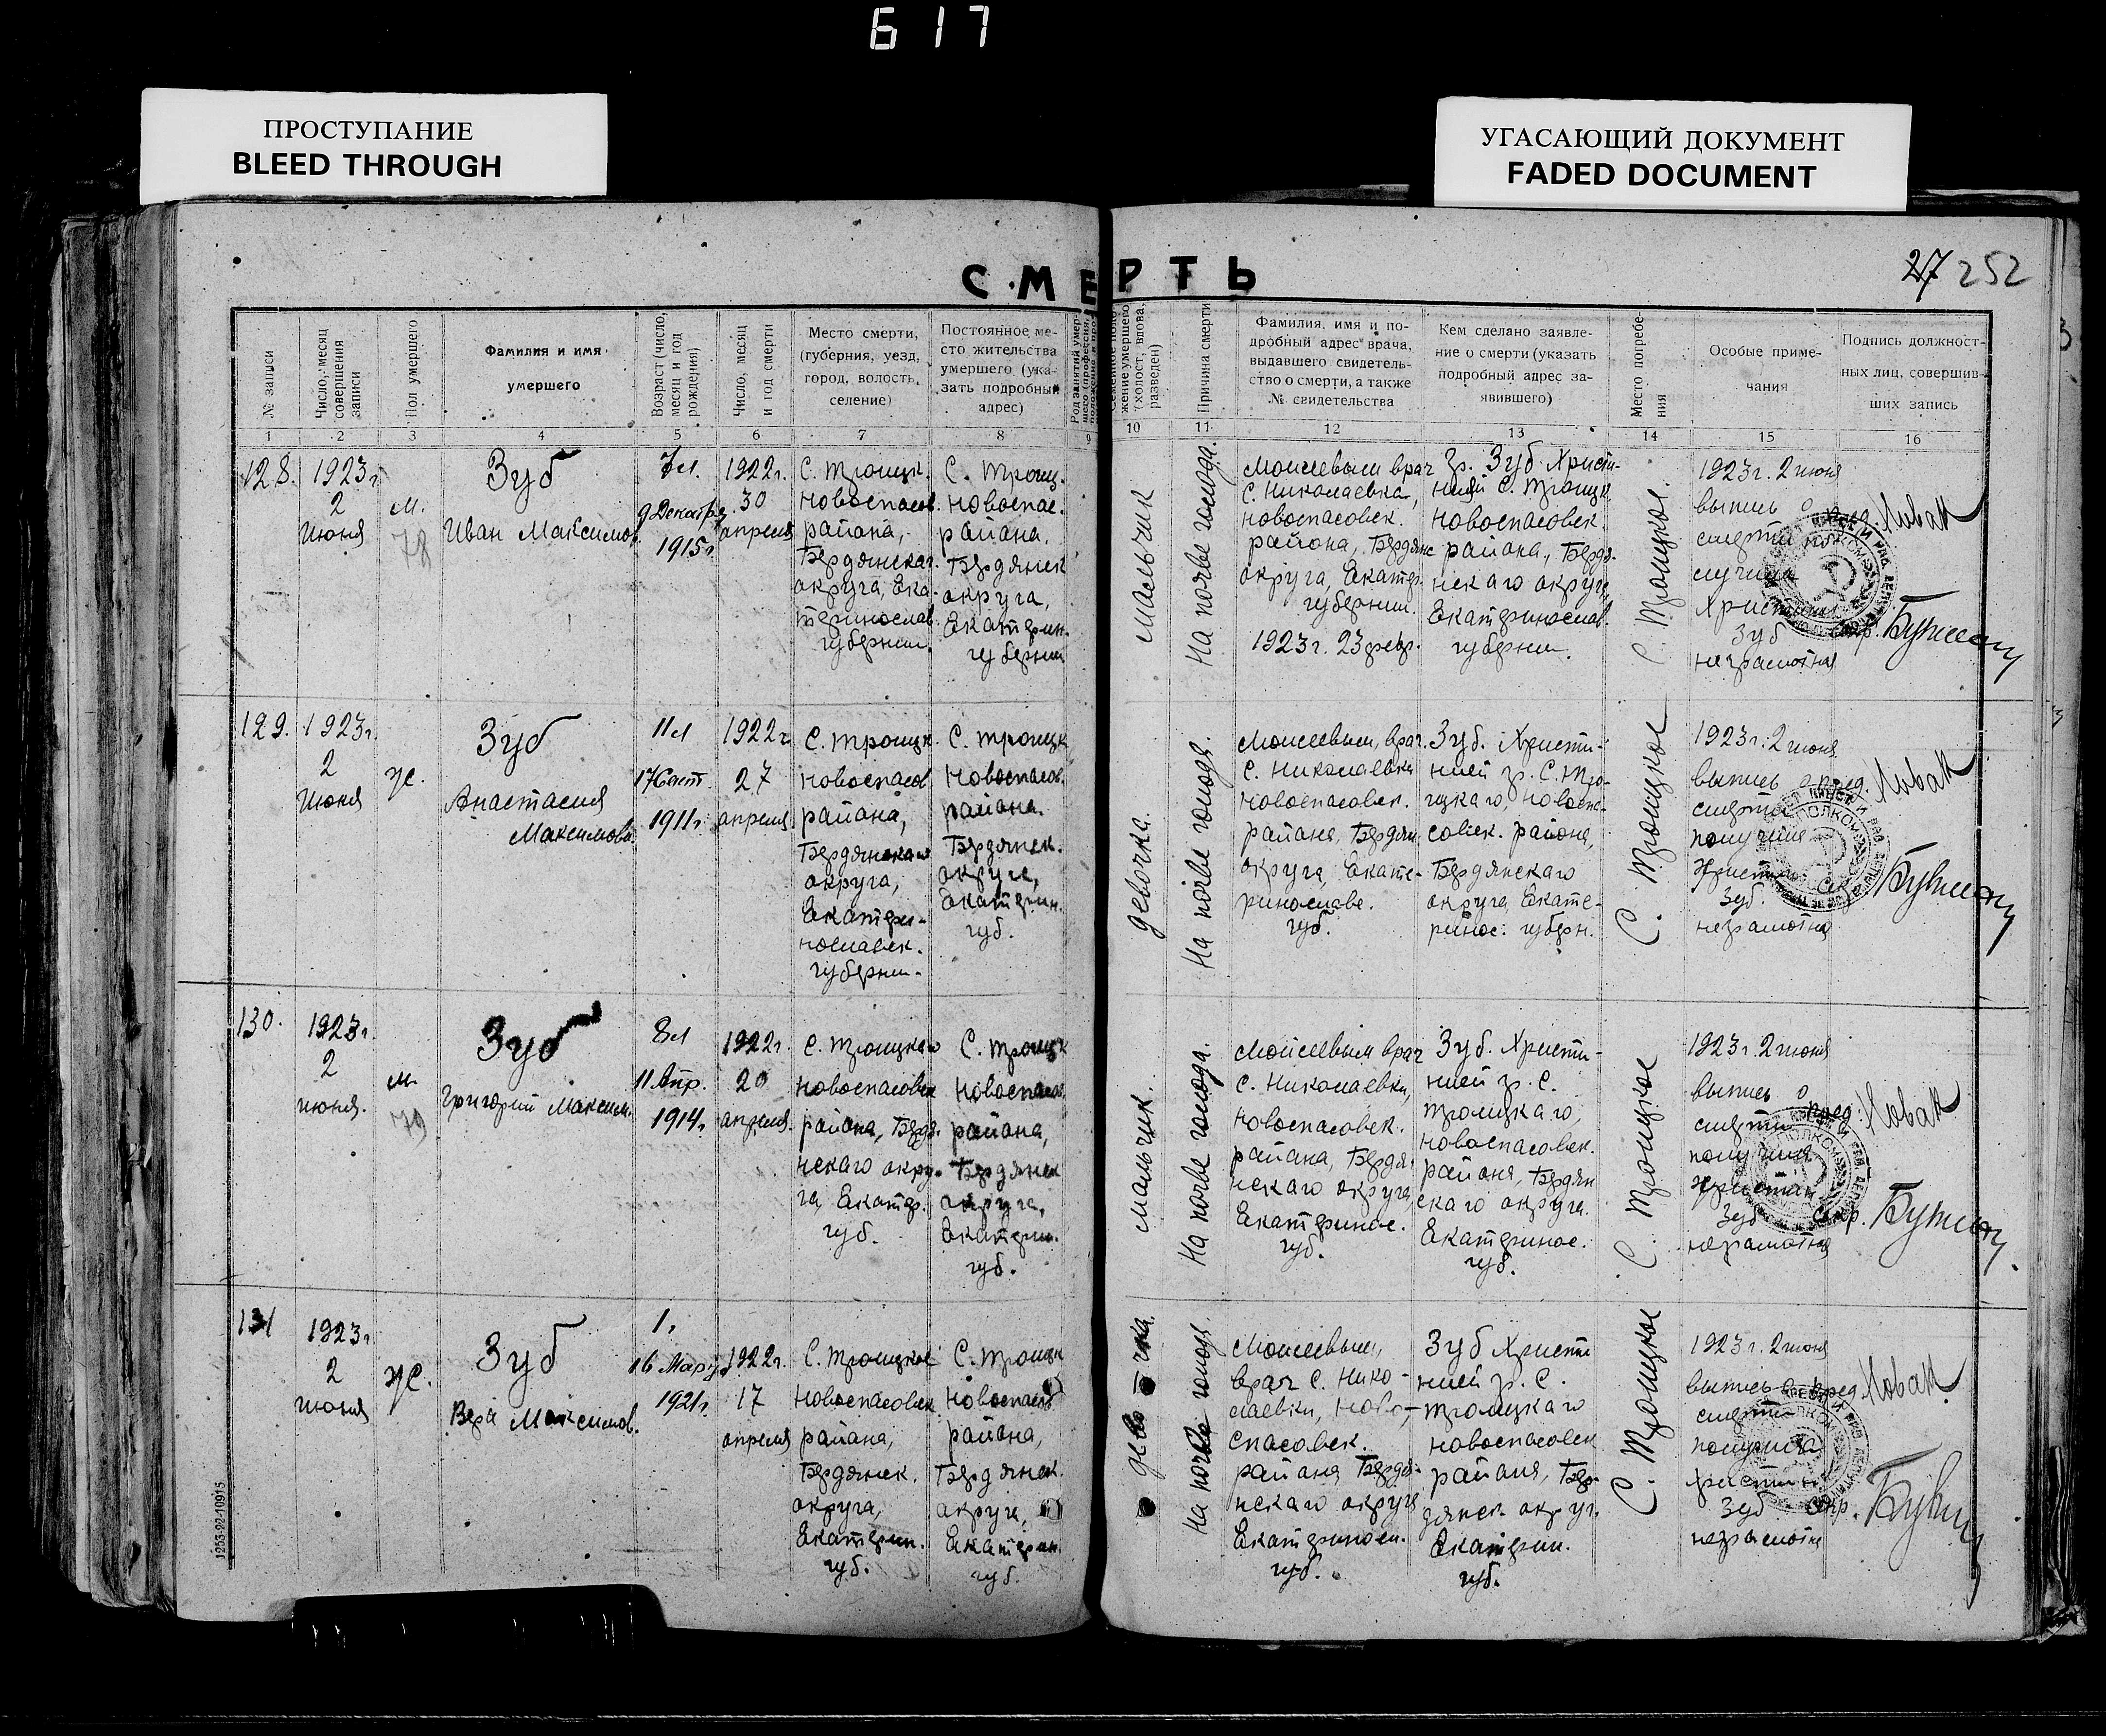 617
ПРОСТУПАНИЕ
BLEED THROUGH
УГАСАЮЩИЙ ДОКУМЕНТ
FADED DOCUMENT
СМЕРТЬ
27 252
№ записи
Число, месяц
совершения
записи
Пол умершего
Фамилия и имя
умершего
Возраст (число,
месяц и год
рождения)
Число, месяц
и год смерти
Место смерти,
(губерния, уезд,
город, волость,
селение)
Постоянное ме-
сто жительства
умершего (ука-
зать подробный
адрес)
Род занятий умер-
жение умершего
(холост, вдова,
разведен)
Причина смерти
Фамилия, имя и по-
дробный адрес врача,
выдавшего свидетель-
ство о смерти, а также
№ свидетельства
Кем сделано заявле-
ние о смерти (указать
подробный адрес за-
явившего)
Место погребе-
ния
Особые приме-
чания
Подпись должност-
ных лиц, совершив-
ших запись
1 2 3 4 5 6 7 8 9 10 11 12 13 14 15 16
128.
1923г.
2
июня
м.
78
Зуб
Иван Максимов.
7 л.
9 Декабря
1915г
1922г.
30
апреля
С. Троицк.
Новоспасов.
района,
Бердянскаг.
округа, Ека-
теринослав.
губернии.
С. Троиц.
Новоспас.
района,
Бердянск
округа,
Екатерин.
губернии
мальчик
На почве голода.
Моисеевым врач
С. Николаевка,
Новоспасовск.
района, Бердянс
округа, Екатер.
губернии.
1923г. 23 февр.
гр. Зуб Христи-
ниэй С. Троицк
Новоспасовск.
района, Бердя-
нскаго округа,
Екатеринослав.
губернии.
С. Троицкое.
1923г. 2 июня
выпись о
смерти
Зуб
неграмотная
пред. Новак
129.
1923г.
2
июня
ж.
Зуб
Анастасия
Максимова.
11 л
1911г.
1922г
27
апреля
С. Троицк.
Новоспасов
района,
Бердянскаго
округа,
Екатери-
нославск.
губернии.
С. Троицк
Новоспасов.
района.
Бердянск.
округа,
Екатерин.
губ.
девочка.
На почве голода.
Моисеевым, врач.
С. Николаевки
Новоспасовск.
района, Бердян
округа, Екате-
ринославс.
губ.
Зуб. Христи-
ниэй гр. С. Тро-
ицкаго, Новоспа-
совск. района,
Бердянскаго
округа, Екате-
ринос. губерн.
С. Троицкое
1923г. 2 июня
выпись о
смерти
получила
Зуб.
неграмотна
пред. Новак
130.
1923г.
2
июня.
м.
79
Зуб
Григорий Максим.
8 л
11 Апр.
1914г.
1922г.
20
апреля.
С. Троицкаго
Новоспасовск
района, Бердя-
нскаго окру-
га, Екатер.
губ.
С. Троицк
Новоспасов
района,
Бердянск
округа,
Екатерин.
губ.
мальчик.
На почве голода.
Моисеевым врач
С. Николаевки,
Новоспасовск.
района, Бердя-
нскаго округа,
Екатеринос.
губ.
Зуб. Христи-
ниэй гр. С.
Троицкаго,
Новоспасовск.
района, Бердян
скаго округа.
Екатеринос.
губ.
С. Троицкое
1923г. 2 июня
выпись о
смерти
получила
Зуб
неграмотна
пред. Новак
131
1923г.
2
июня
ж.
Зуб
Вера Максимов.
1 г
16 Марта
1921г.
1922г.
17
апреля
С. Троицкое
Новоспасовск
района,
Бердянск.
округа,
Екатерин.
губ.
С. Троицк
Новоспасов
района,
Бердянск.
округа,
Екатерин.
губ.
девочка.
На почве голода.
Моисеевым,
врач С. Нико-
лаевки, Ново-
спасовск.
района Бердя-
нскаго округа
Екатериносл.
губ.
Зуб Христи
ниэй гр. С.
Троицкаго
Новоспасовск
района, Бер-
дянск. округ.
Екатерин.
губ.
С. Троицкое
1923г. 2 июня
выпись о
смерти
получила
Зуб
неграмотна
пред. Новак
1253-92-10915